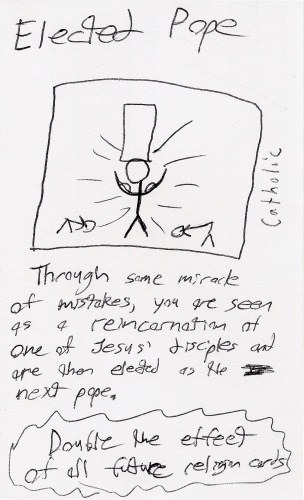 Elected Pope
Catholic
Through some miracle
of mistakes, you are seen
as a reincarnation of
one of Jesus' disciples and
are then elected as the
next pope.
Double the effect
of all future religion cards